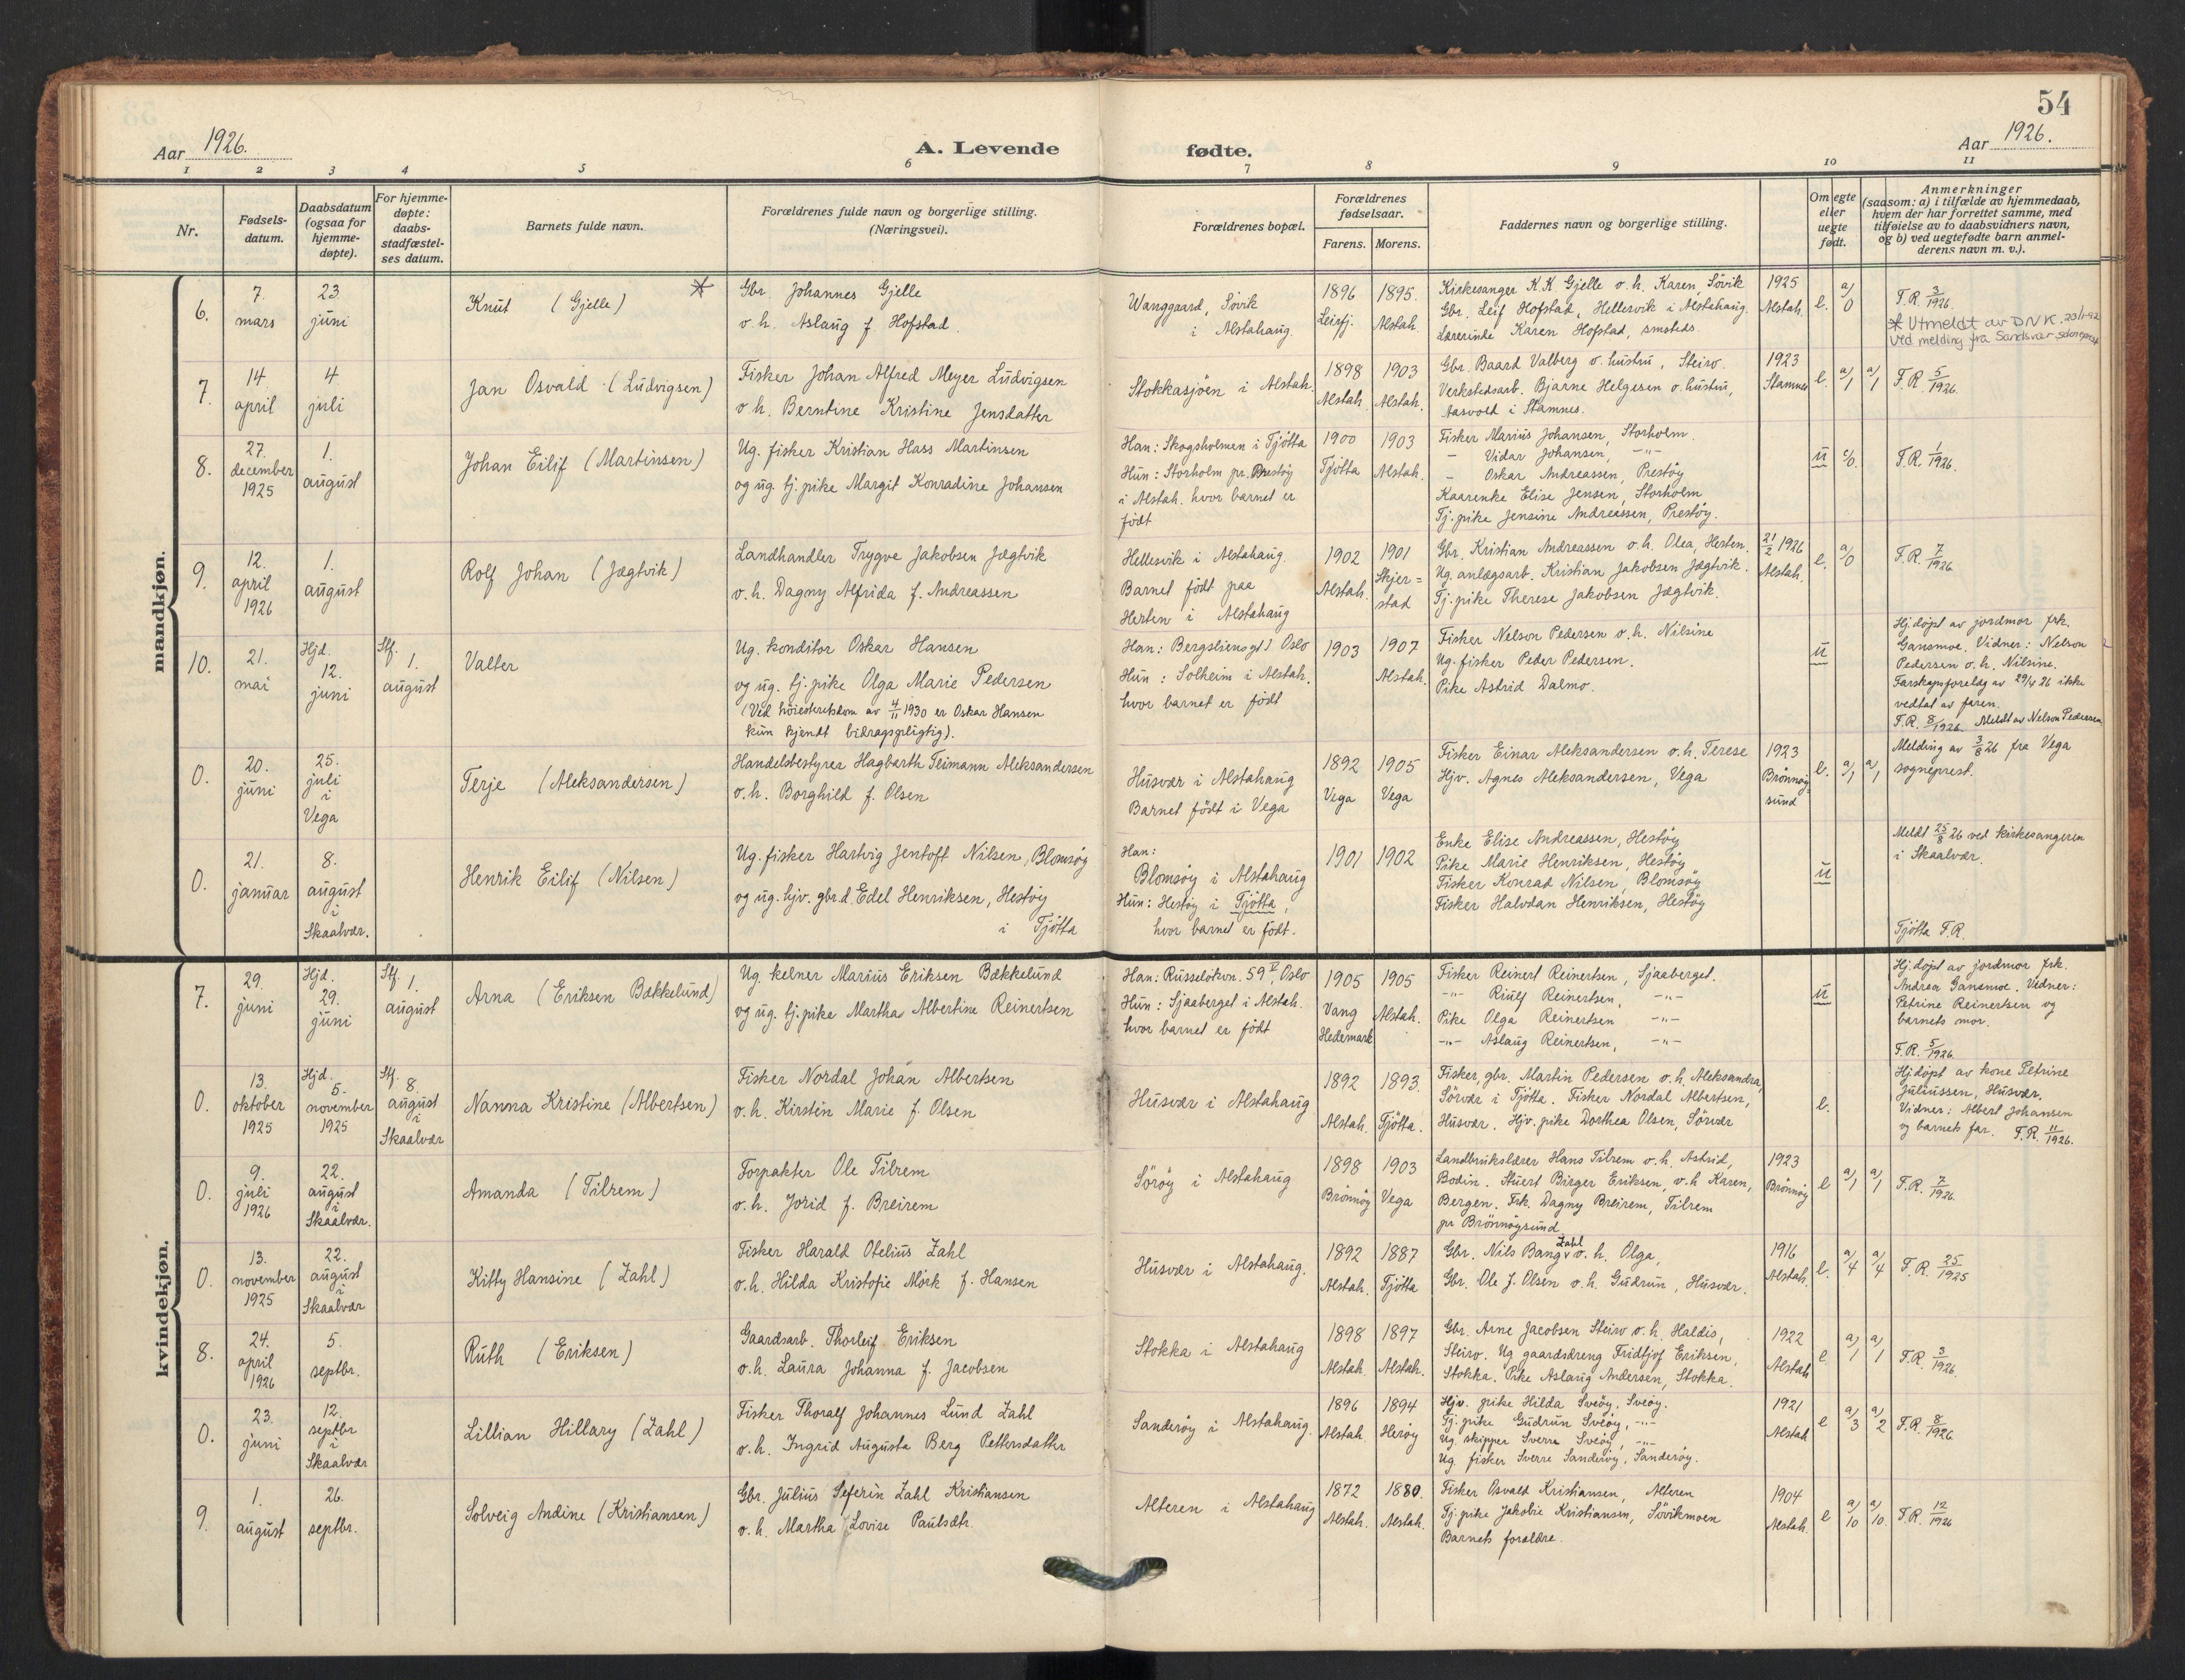 54
Aar 1926.
A. Levende fødte.
Aar 1926.
1 2 3 4 5 6 7 8 9 10 11
Nr.
Fødsels-
datum.
Daabsdatum
(ogsaa for
hjemme-
døpte).
For hjemme-
døpte:
daabs-
stadfæstel-
ses datum.
Barnets fulde navn.
Forældrenes fulde navn og borgerlige stilling.
(Næringsvei).
Forældrenes bopæl.
Forældrenes
fødselsaar.
Farens. Morens.
Faddernes navn og borgerlige stilling.
Om egte
eller
uegte
født.
Anmerkninger
(saasom: a) i tilfælde av hjemmedaab,
hvem der har forrettet samme, med
tilføielse av to daabsvidners navn,
og b) ved uegtefødte barn anmel-
derens navn m. v.).
mandkjøn.
6.
7.
mars
23.
juni
Knut (Gjelle) *
Gbr. Johannes Gjelle
o. h. Aslaug f. Hofstad.
Wanggaard, Søvik
i Alstahaug.
1896
Leirfj.
1895.
Alstah.
Kirkesanger K. K. Gjelle o. h. Karen, Søvik
Gbr. Leif Hofstad, Hellesvik i Alstahaug.
Lærerinde Karen Hofstad, smsteds.
1925
Alstah.
e. a/0
F.R. 3/1926.
* Utmeldt av DNK. 23/1-92
ved melding fra Sandsvær
7.
14.
april
4.
juli
Jan Osvald (Ludvigsen)
Fisker Johan Alfred Meyer Ludvigsen
o. h. Berntine Kristine Jensdatter
Stokkasjøen i Alstah.
1898
Alstah.
1903
Alstah.
Gbr. Baard Valberg o. hustru, Steiro.
Verkstedsarb. Bjarne Helgesen o. hustru,
Aasvold i Stamnes.
1923
Stamnes
e. a/1 a/1
F.R. 5/1926.
8.
27.
december
1925
1.
august
Johan Eilif (Martinsen)
Ug. fisker Kristian Hass Martinsen
og ug. tj. pike Margit Konradine Johansen
Han: Skogsholmen i Tjøtta
Hun: Storholm pr. Prestøy
i Alstah. hvor barnet er
født
1900
Tjøtta
1903
Alstah.
Fisker Marius Johansen, Storholm.
- Vidar Johansen, -"-
- Oskar Andreassen, Prestøy
Kaarenke Elise Jensen, Storholm
Tj. pike Jensine Andreassen, Prestøy.
u c/0.
F.R. 1/1926.
9.
12.
april
1926
1.
august
Rolf Johan (Jægtvik)
Landhandler Trygve Jakobsen Jægtvik
o. h. Dagny Alfrida f. Andreassen
Hellesvik i Alstahaug.
Barnet født paa
Hesten i Alstahaug
1902
Alstah.
1901
Skjer=
stad
Gbr. Kristian Andreassen o. h. Olea, Hesten.
Ug. anlægsarb. Kristian Jakobsen Jægtvik.
Tj. pike Therese Jakobsen Jægtvik.
21/2 1926
Alstah.
e. a/0
F.R. 7/1926.
10.
21.
mai
Hjd.
12.
juni
Stf.
1.
august
Valter
Ug. konditor Oskar Hansen
og ug. tj. pike Olga Marie Pedersen
(Ved høiesteretsdom av 4/11 1930 er Oskar Hansen
kun kjendt bidragspligtig).
Han: Bergsliensgt 1 Oslo
Hun: Solheim i Alstah.
hvor barnet er født
1903
1907
Alstah.
Fisker Nelson Pedersen o. h. Nilsine
Ug. fisker Peder Pedersen.
Pike Astrid Dalmo.
u
Hj. døpt av jordmor frk.
Gansmoe. Vidner: Nelson
Pedersen o. h. Nilsine.
Farskapsforelæg av 29/4 26 ikke
vedtat av faren.
F.R. 8/1926. Meldt av Nelson Pedersen
0.
20.
juni
25.
juli
i
Vega
Terje (Aleksandersen)
Handelsbestyrer Hagbarth Teimann Aleksandersen
o. h. Borghild f. Olsen
Husvær i Alstahaug
Barnet født i Vega
1892
Vega
1905
Vega
Fisker Einar Aleksandersen o. h. Terese
Hjv. Agnes Aleksandersen, Vega
1923
Brønnøy-
sund
e. a/1 a/1
Melding av 3/8 26 fra Vega
sogneprest.
0.
21.
januar
8.
august
i
Skaalvær.
Henrik Eilif (Nilsen)
Ug. fisker Hartvig Jentoft Nilsen, Blomsøy
og ug. hjv. gbr.d. Edel Henriksen, Hestøy
i Tjøtta
Han:
Blomsøy i Alstahaug
Hun: Hestøy i Tjøtta,
hvor barnet er født.
1901
1902
Enke Elise Andreassen, Hestøy
Pike Marie Henriksen, Hestøy
Fisker Konrad Nilsen, Blomsøy
Fisker Halvdan Henriksen, Hestøy
u
Meldt 25/8 26 ved kirkesangeren
i Skaalvær.
Tjøtta F.R.
kvindekjøn.
7.
29.
juni
Hjd.
29.
juni
Stf.
1.
august
Arna (Eriksen Bækkelund)
Ug. kelner Marius Eriksen Bækkelund
og ug. tj. pike Martha Albertine Reinertsen
Han: Russeløkvn. 59 V, Oslo
Hun: Sjaaberget i Alstah.
hvor barnet er født
1905
Vang
Hedemark
1905
Alstah.
Fisker Reinert Reinertsen, Sjaaberget.
-"- Riulf Reinertsen, -"-
Pike Olga Reinertsen -"-
-"- Aslaug Reinertsen, -"-
u
Hj. døpt av jordmor frk.
Andrea Gansmoe. Vidner:
Petrine Reinertsen og
barnets mor.
F.R. 5/1926.
0.
13.
oktober
1925
Hjd.
5.
november
1925
Stf.
8.
august
i
Skaalvær
Nanna Kristine (Albertsen)
Fisker Nordal Johan Albertsen
o. h. Kirstin Marie f. Olsen
Husvær i Alstahaug
1892
Alstah.
1893.
Tjøtta.
Fisker, gbr. Martin Pedersen o. h. Aleksandra,
Sørvær i Tjøtta. Fisker Nordal Albertsen,
Husvær. Hjv. pike Dorthea Olsen, Sørvær
e.
Hj. døpt av kone Petrine
Juliussen, Husvær.
Vidner: Albert Johansen
og barnets far. F.R. 11/1926.
0.
9.
juli
1926
22.
august
i
Skaalvær.
Amanda (Tilrem)
Forpakter Ole Tilrem
o. h. Jorid f. Breirem
Sørøy i Alstahaug
1898
Brønnøy
1903
Vega
Landbrukslærer Hans Tilrem o. h. Astrid,
Bodin. Stuert Birger Eriksen, o. h Karen,
Bergen. Frk. Dagny Breirem, Tilrem
pr Brønnøysund
1923
Brønnøy
e a/1 a/1
F.R. 7/1926.
0.
13.
november
1925
22.
august
i
Skaalvær
Kitty Hansine (Zahl)
Fisker Harald Otelius Zahl
o. h. Hilda Kristofie Mörk f. Hansen
Husvær i Alstahaug.
1892
Alstah.
1887
Tjøtta
Gbr. Nils Bang Zahl o. h. Olga,
Gbr. Ole J. Olsen o. h. Gudrun, Husvær.
1916
Alstah.
e. a/4 a/4
F.R. 25/1925
8.
24.
april
1926
5.
septbr.
Ruth (Eriksen)
Gaardsarb. Thorleif Eriksen
o. h. Laura Johanna f. Jacobsen
Stokka i Alstahaug
1898
Alstah.
1897
Alstah.
Gbr. Arne Jacobsen Steiro o. h. Haldis,
Steiro. Ug gaardsdreng Fridtjof Eriksen,
Stokka. Pike Aslaug Andersen, Stokka.
1922
Alstah
e a/1 a/1
F.R. 3/1926.
0.
23.
juni
12.
septbr
i
Skaalvær
Lillian Hillary (Zahl)
Fisker Thoralf Johannes Lund Zahl
o. h. Ingrid Augusta Berg Pettersdatter
Sanderøy i Alstahaug.
1896
Alstah.
1894
Herøy
Hjv. pike Hilda Sveøy, Sveøy.
Tj. pike Gudrun Sveøy, -"-
Ug. skipper Sverre Sveøy, -"-
Ug. fisker Sverre Sanderøy, Sanderøy.
1921
Alstah
e a/3 a/2
F.R. 8/1926.
9.
1.
august
26.
septbr.
Solveig Andine (Kristiansen)
Gbr. Julius Seferin Zahl Kristiansen
o. h. Martha Lovise Paulsdtr.
Alteren i Alstahaug
1872
Alstah.
1880.
Alstah.
Fisker Osvald Kristiansen, Alteren
Tj. pike Jakobie Kristiansen, Søvikmoen
Barnets forældre.
1904
Alstah.
e a/10 a/10.
F.R. 12/1926